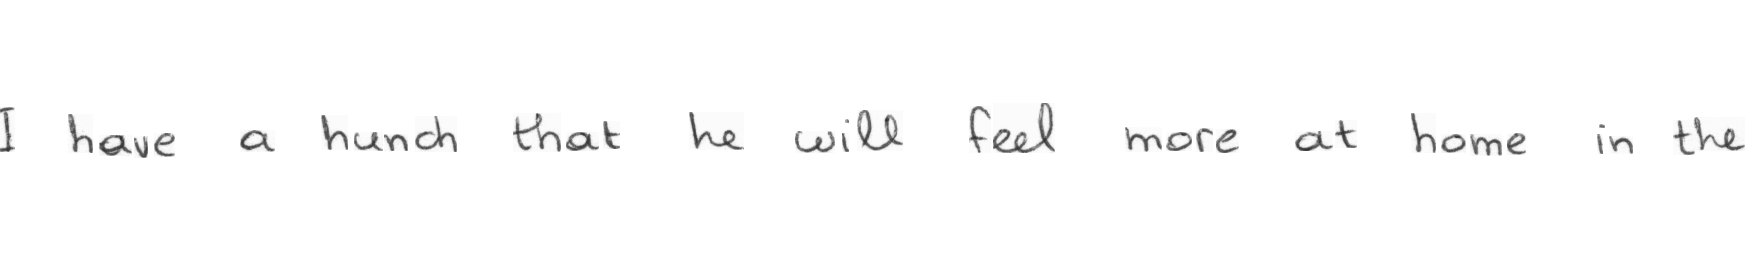 I have a hunch that he will feel more at home in the